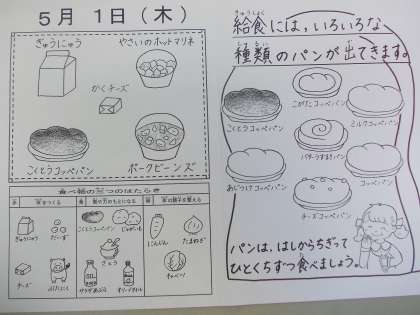 5月 1日(木)
ぎゅうにゅう
やさいのホットマリネ
かくチーズ
こくとうコッペパン
ポークビーンズ
食べ物の三つのはたらき
赤
体をつくる
黄
緑
体の調子を整える
ぎゅうにゅう
だいず
チーズ
ぶたにく
こくとうコッペパン
じゃがいも
さとう
サラダあぶら
オリーブオイル
にんじん
たまねぎ
キャベツ
きゅうしょく
給食には、いろいろな
しゅるい
種類のパンが出てきます。
こがたコッペパン
こくとうコッペパン
ミルクコッペパン
バターうずまきパン
あじつけコッペパン
コッペパン
チーズコッペパン
パンは、はしからちぎって
ひとくちずつ食べましょう。